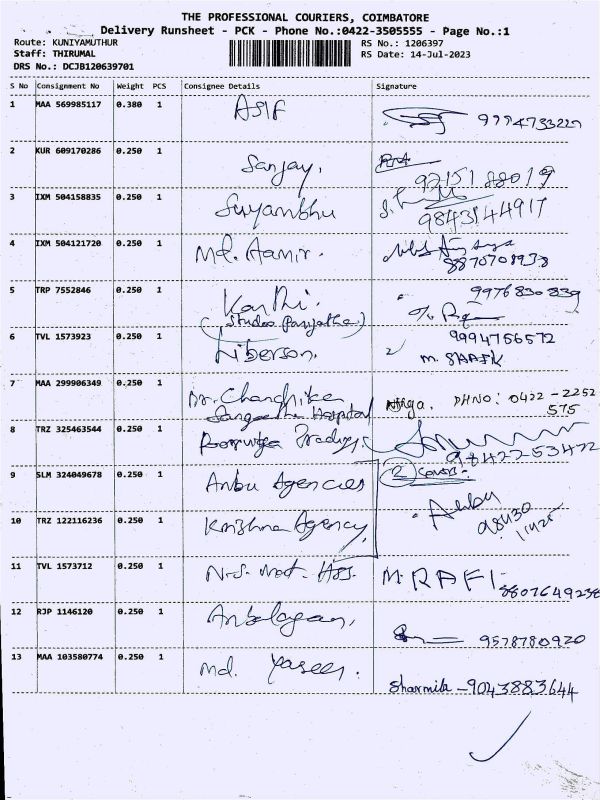 THE PROFESSIONAL COURIERS, COIMBATORE
Delivery Runsheet - PCK - Phone No.:0422-3505555 - Page No.:1
Route: KUNIYAMUTHUR RS No.: 1206397
Staff: THIRUMAL RS Date: 14-Jul-2023
DRS No.: DCJB120639701
S No Consignment No Weight PCS Consignee Details Signature
1 MAA 569985117 0.380 1 ASIF
2 KUR 609170286 0.250 1 Sanjay. 92151 88019
3 IXM 504158835 0.250 1 Suyambhu 9843144917
4 IXM 504121720 0.250 1 Md. Aamir. 8870708938
5 TRP 7552846 0.250 1 9976830839
(Studio Parijatha)
6 TVL 1573923 0.250 1 Liberson. 9994756572
M. SHAFIK
7 MAA 299906349 0.250 1 Dr. Chandrika PHNO: 0422 - 2252
Sangeetha Hospital 575
8 TRZ 325463544 0.250 1 98422-53472
9 SLM 324049678 0.250 1 Anbu Agencies 2 Covers
10 TRZ 122116236 0.250 1 Krishna Agency Anbu
11 TVL 1573712 0.250 1 N.S. Mat. Hss. M. RAFI. 8807649238
12 RJP 1146120 0.250 1 Anbalagan, 9578780920
13 MAA 103580774 0.250 1 Md. Yaseer. Sharmila - 9043883644